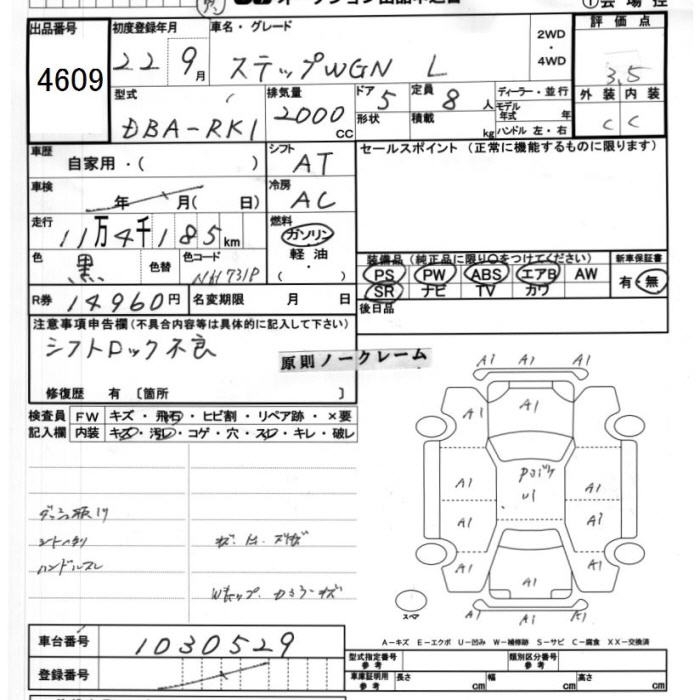 出品番号 初度登録年月 車名・グレード 2WD・4WD 評価点
4609 22 9月 ステップWGN L 3.5
型式 排気量 ドア 5 定員 8人 ディーラー・並行 外装 内装
DBA-RK1 2000 CC 形状 積載 kg モデル年式 年 ハンドル 左・右 C C
車歴 自家用・( ) シフト AT セールスポイント (正常に機能するものに限ります)
車検 年 月( 日) 冷房 AC
走行 11万4千185km 燃料 ガソリン・軽油・( )
色 黒 色替 色コード NH731P
装備品 (純正品に限り○をつけてください) 新車保証書
PS PW ABS エアB AW 有・無
SR ナビ TV カワ
R券 14960円 名変期限 月 日 後日品
注意事項申告欄 (不具合内容等は具体的に記入して下さい)
シフトロック不良
原則ノークレーム
修復歴 有 〔箇所 〕
検査員 FW キズ・飛石・ヒビ割・リペア跡・×要
記入欄 内装 キズ・汚レ・コゲ・穴・スレ・キレ・破レ
A1 A1 A1
A1 A1 A1
A1 A1
A1 A1
A1 A1 A1
A1 A1
ハンドルスレ
スペア
A-キズ E-エクボ U-凹み W-補修跡 S-サビ C-腐食 XX-交換済
車台番号 1030529
登録番号
型式指定番号 参考 類別区分番号 参考
車庫証明用 参考 長さ cm 幅 cm 高さ cm